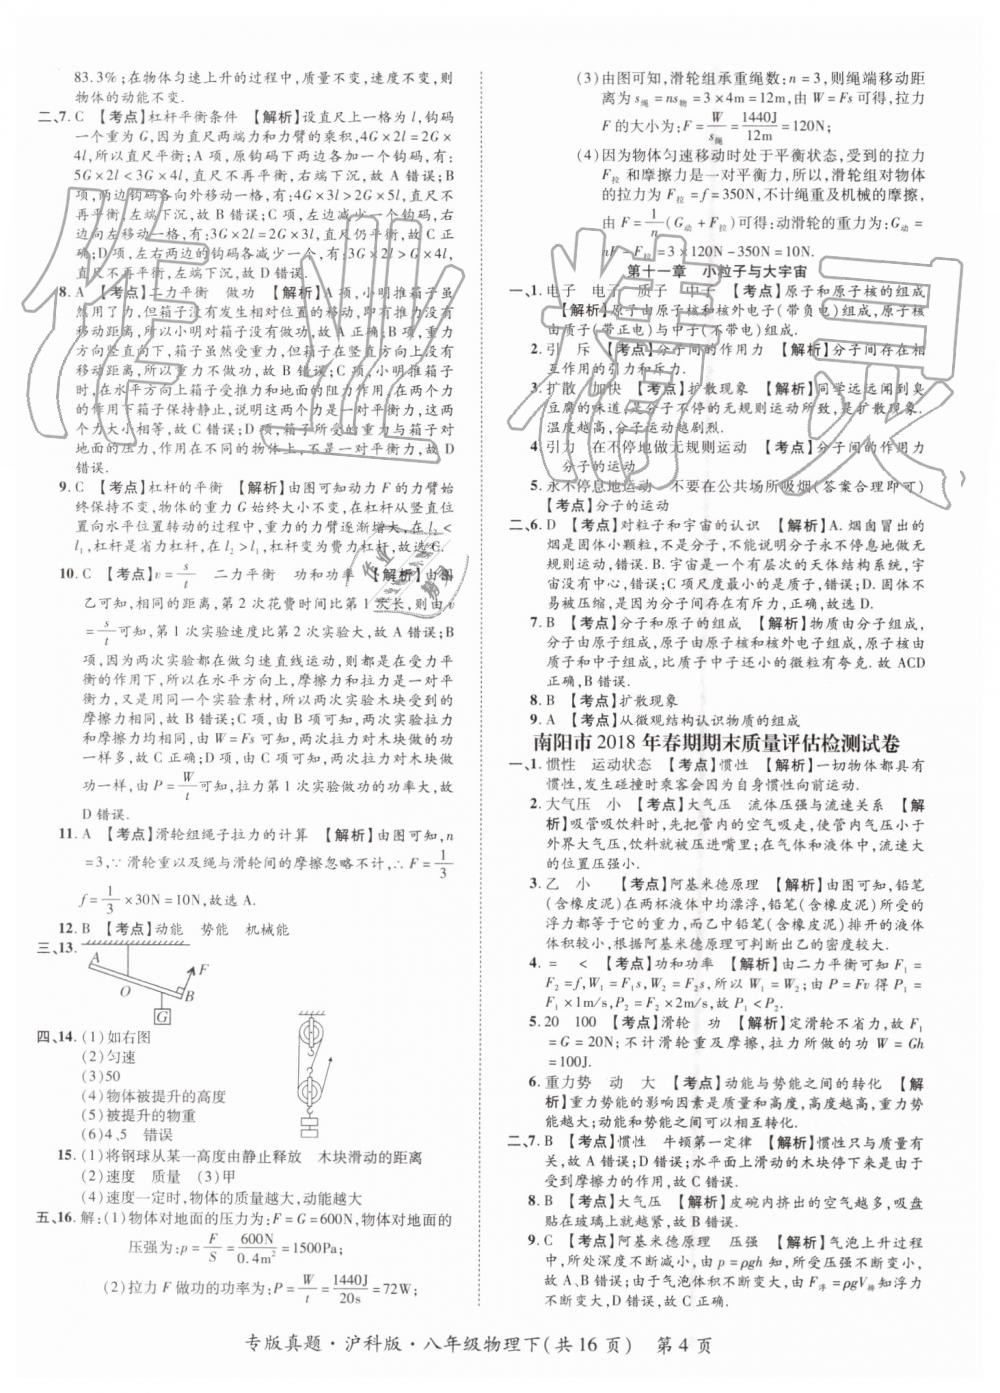 83.3%;在物体匀速上升的过程中,质量不变,速度不变,则
物体的动能不变.
二、7. C 【考点】杠杆平衡条件 【解析】设直尺上一格为l,钩码
一个重为G,因为直尺两端力和力臂的乘积,4G×2l=2G×
4l,所以直尺平衡;A项,原钩码下两边各加一个钩码,有:
5G×2l<3G×4l,直尺不再平衡,右端下沉,故A错误;B
项,两边钩码各向外移动一格,有:4G×3l>2G×5l,直尺不
再平衡,左端下沉,故B错误;C项,左边减少一个钩码,右
边向左移动一格,有:3G×2l=2G×3l,直尺仍平衡,故C正
确;D项,左右两边的钩码各减少一个,有:3G×2l>G×4l,
直尺不再平衡,左端下沉,故D错误.
8. A 【考点】二力平衡 做功 【解析】A项,小明推箱子虽
然用了力,但由于没有发生相对位置的移动,即有推力没有
移动距离,所以小明对箱子没有做功,故A正确;B项,重力
方向竖直向下,箱子虽然受重力,但在重力方向上没有移动
距离,所以重力不做功,故B错误;C项,小明推箱子没推动
时,在水平方向上箱子受推力和地面的阻力作用,在两个力
的作用下箱子保持静止,说明这两个力是一对平衡力,故这
两个力大小相等,故C错误;D项,箱子所受的重力与箱子对
地面的压力,作用在不同的物体上,不是一对平衡力,故D
错误.
9. C 【考点】杠杆的平衡 【解析】由图可知动力F的力臂始
终保持不变,物体的重力G始终大小不变,在杠杆从竖直位
置向水平位置转动的过程中,重力的力臂逐渐增大,在l₂<
l₁,杠杆是省力杠杆,在l₂>l₁,杠杆变为费力杠杆,故选C.
10. C 【考点】v=s/t 二力平衡 功和功率 【解析】由图
乙可知,相同的距离,第2次花费时间比第1次长,则由v
=s/t可知,第1次实验速度比第2次实验大,故A错误;B
项,因为两次实验都在做匀速直线运动,则都是在受力平
衡的作用下,所以在水平方向上,摩擦力和拉力是一对平
衡力,又是用同一个实验素材,所以两次实验木块受到的
摩擦力相同,故B错误;C项,由B可知,两次实验拉力
和摩擦力大小均相等,所以两次实验中拉力对木块做功一
样多,故C正确;D项,由于第1次比第2次用时短,所以
由P=W/t可知,第1次实验拉力对木块做功的功率大,故
D错误.
11. A 【考点】滑轮组绳子拉力的计算 【解析】由图可知,n
=3,∵滑轮重以及绳与滑轮间的摩擦忽略不计,∴F=1/3
f=1/3×30N=10N,故选A.
12. B 【考点】动能 势能 机械能
三、13.
A
O
F
B
G
四、14. (1)如右图
(2)匀速
(3)50
(4)物体被提升的高度
(5)被提升的物重
(6)4、5 错误
15. (1)将钢球从某一高度由静止释放 木块滑动的距离
(2)速度 质量 (3)甲
(4)速度一定时,物体的质量越大,动能越大
五、16. 解:(1)物体对地面的压力为:F=G=600N,物体对地面的
压强为:p=F/S=600N/0.4m²=1500Pa;
(2)拉力F做功的功率为:P=W/t=1440J/20s=72W;
(3)由图可知,滑轮组承重绳数:n=3,则绳端移动距
离为s绳=ns物=3×4m=12m,由W=Fs可得,拉力
F的大小为:F=W/s绳=1440J/12m=120N;
(4)因为物体匀速移动时处于平衡状态,受到的拉力
F拉和摩擦力是一对平衡力,所以,滑轮组对物体
的拉力为F拉=f=350N,不计绳重及机械的摩擦,
由F=1/n(G动+F拉)可得:动滑轮的重力为:G动=
nF-F拉=3×120N-350N=10N.
第十一章 小粒子与大宇宙
一、1. 电子 电子 质子 中子 【考点】原子和原子核的组成
【解析】原子由原子核和核外电子(带负电)组成,原子核
由质子(带正电)与中子(不带电)组成.
2. 引 斥 【考点】分子间的作用力 【解析】分子间存在相
互作用的引力和斥力.
3. 扩散 加快 【考点】扩散现象 【解析】同学远远闻到臭
豆腐的味道,是分子不停的无规则运动所致,是扩散现象.
温度越高,分子运动越剧烈.
4. 引力 在不停地做无规则运动 【考点】分子间的作用力
分子的运动
5. 永不停息地运动 不要在公共场所吸烟(答案合理即可)
【考点】分子的运动
二、6. D 【考点】对粒子和宇宙的认识 【解析】A. 烟囱冒出的
烟是固体小颗粒,不是分子,不是说明分子永不停息地做无规
则运动. B. 宇宙是一个有层次的天体结构系统,宇
宙没有中心,B错误;C项尺度最小的是质子,错误;D. 固体不
易被压缩,是因为分子间存在有斥力,D正确,故选D.
7. B 【考点】分子和原子的组成 【解析】物质由分子组成,
分子由原子组成,原子由原子核和核外电子组成,原子核由
质子和中子组成,比质子中子还小的微粒有夸克. 故ACD
正确,B错误.
8. B 【考点】扩散现象
9. A 【考点】从微观结构认识物质的组成
南阳市2018年春期期末质量评估检测试卷
一、1. 惯性 运动状态 【考点】惯性 【解析】一切物体都具有
惯性,发生碰撞时乘客会因为自身惯性向前运动.
2. 大气压 小 【考点】大气压 流体压强与流速关系 【解
析】吸管吸饮料时,先把管内的空气吸走,使管内气压小于
外界大气压,饮料就被压进嘴里;在气体和液体中,流速大
的位置压强小.
3. 乙 小 【考点】阿基米德原理 【解析】由图可知,铅笔
(含橡皮泥)在两杯液体中均漂浮,铅笔(含橡皮泥)所受的
浮力都等于它的重力,而乙中铅笔(含橡皮泥)排开的液体
体积较小,根据阿基米德原理可判断出乙的密度较大.
4. = < 【考点】功和功率 【解析】由二力平衡可知F₁=
F₂=f,W₁=F₁s,W₂=F₂s,所以W₁=W₂;由P=Fv得P₁=
F₁×1m/s,P₂=F₂×2m/s,故P₁<P₂.
5. 20 100 【考点】滑轮 功 【解析】定滑轮不省力,故F₁
=G=20N;不计滑轮重及摩擦,拉力所做的功W=Gh
=100J.
6. 重力势 动 大 【考点】动能与势能之间的转化 【解
析】重力势能的影响因素是质量和高度,高度越高,重力势
能越大;动能和势能之间可以相互转化.
二、7. B 【考点】惯性 牛顿第一定律 【解析】惯性只与质量有
关,故A错误;D错误;水平面上滑动的木块停下来是由于
受到了阻力,故C错误.
8. B 【考点】大气压 【解析】皮碗内挤出的空气越多,吸盘
贴在玻璃上就越紧,故B错误.
9. C 【考点】阿基米德原理 压强 【解析】气泡上升过程
中,所处深度不断减小,由p=ρgh知,所受压强不断变小,
故A、B错误;由于气泡体积不断变大,由F浮=ρgV排知浮力
不断变大,故C正确,D错误.
专版真题·沪科版·八年级物理下(共16页) 第4页